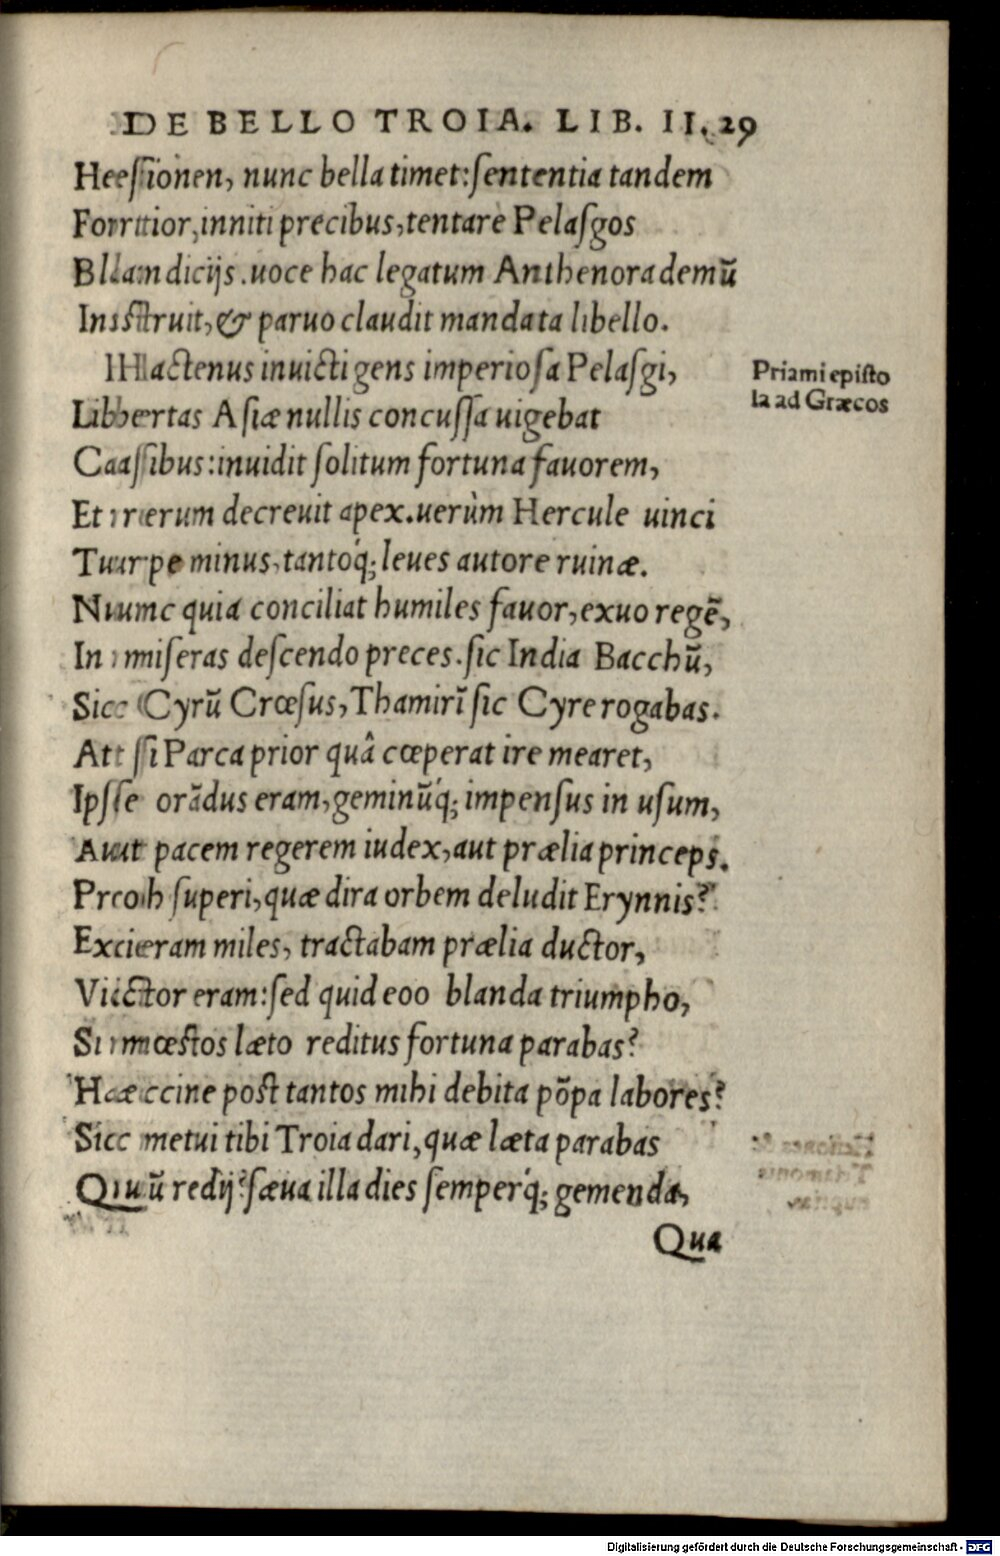 DE BELLO TROIA. LIB. II. 29
Hesionen, nunc bella timet: sententia tandem
Fortior, inniti precibus, tentare Pelasgos
Blandicijs. uoce hac legatum Anthenora demũ
Instruit, & paruo claudit mandata libello.
Hactenus inuicti gens imperiosa Pelasgi,
Priami episto
la ad Græcos
Libertas Asiæ nullis concussa uigebat
Cassibus: inuidit solitum fortuna fauorem,
Et rerum decreuit apex. uerùm Hercule uinci
Turpe minus, tantoq́; leues autore ruinæ.
Nunc quia conciliat humiles fauor, exuo regẽ,
In miseras descendo preces. sic India Bacchũ,
Sic Cyrũ Crœsus, Thamirĩ sic Cyre rogabas.
At si Parca prior quâ cœperat ire mearet,
Ipse orãdus eram, geminũq́; impensus in usum,
Aut pacem regerem iudex, aut prælia princeps.
Proh superi, quæ dira orbem deludit Erynnis?
Exieram miles, tractabam prælia ductor,
Victor eram: sed quid eoo blanda triumpho,
Si mœstos læto reditus fortuna parabas?
Hæccine post tantos mihi debita põpa labores?
Sic metui tibi Troia dari, quæ læta parabas
Quũ redij? sæua illa dies semperq́; gemenda,
Qua
Digitalisierung gefördert durch die Deutsche Forschungsgemeinschaft - DFG